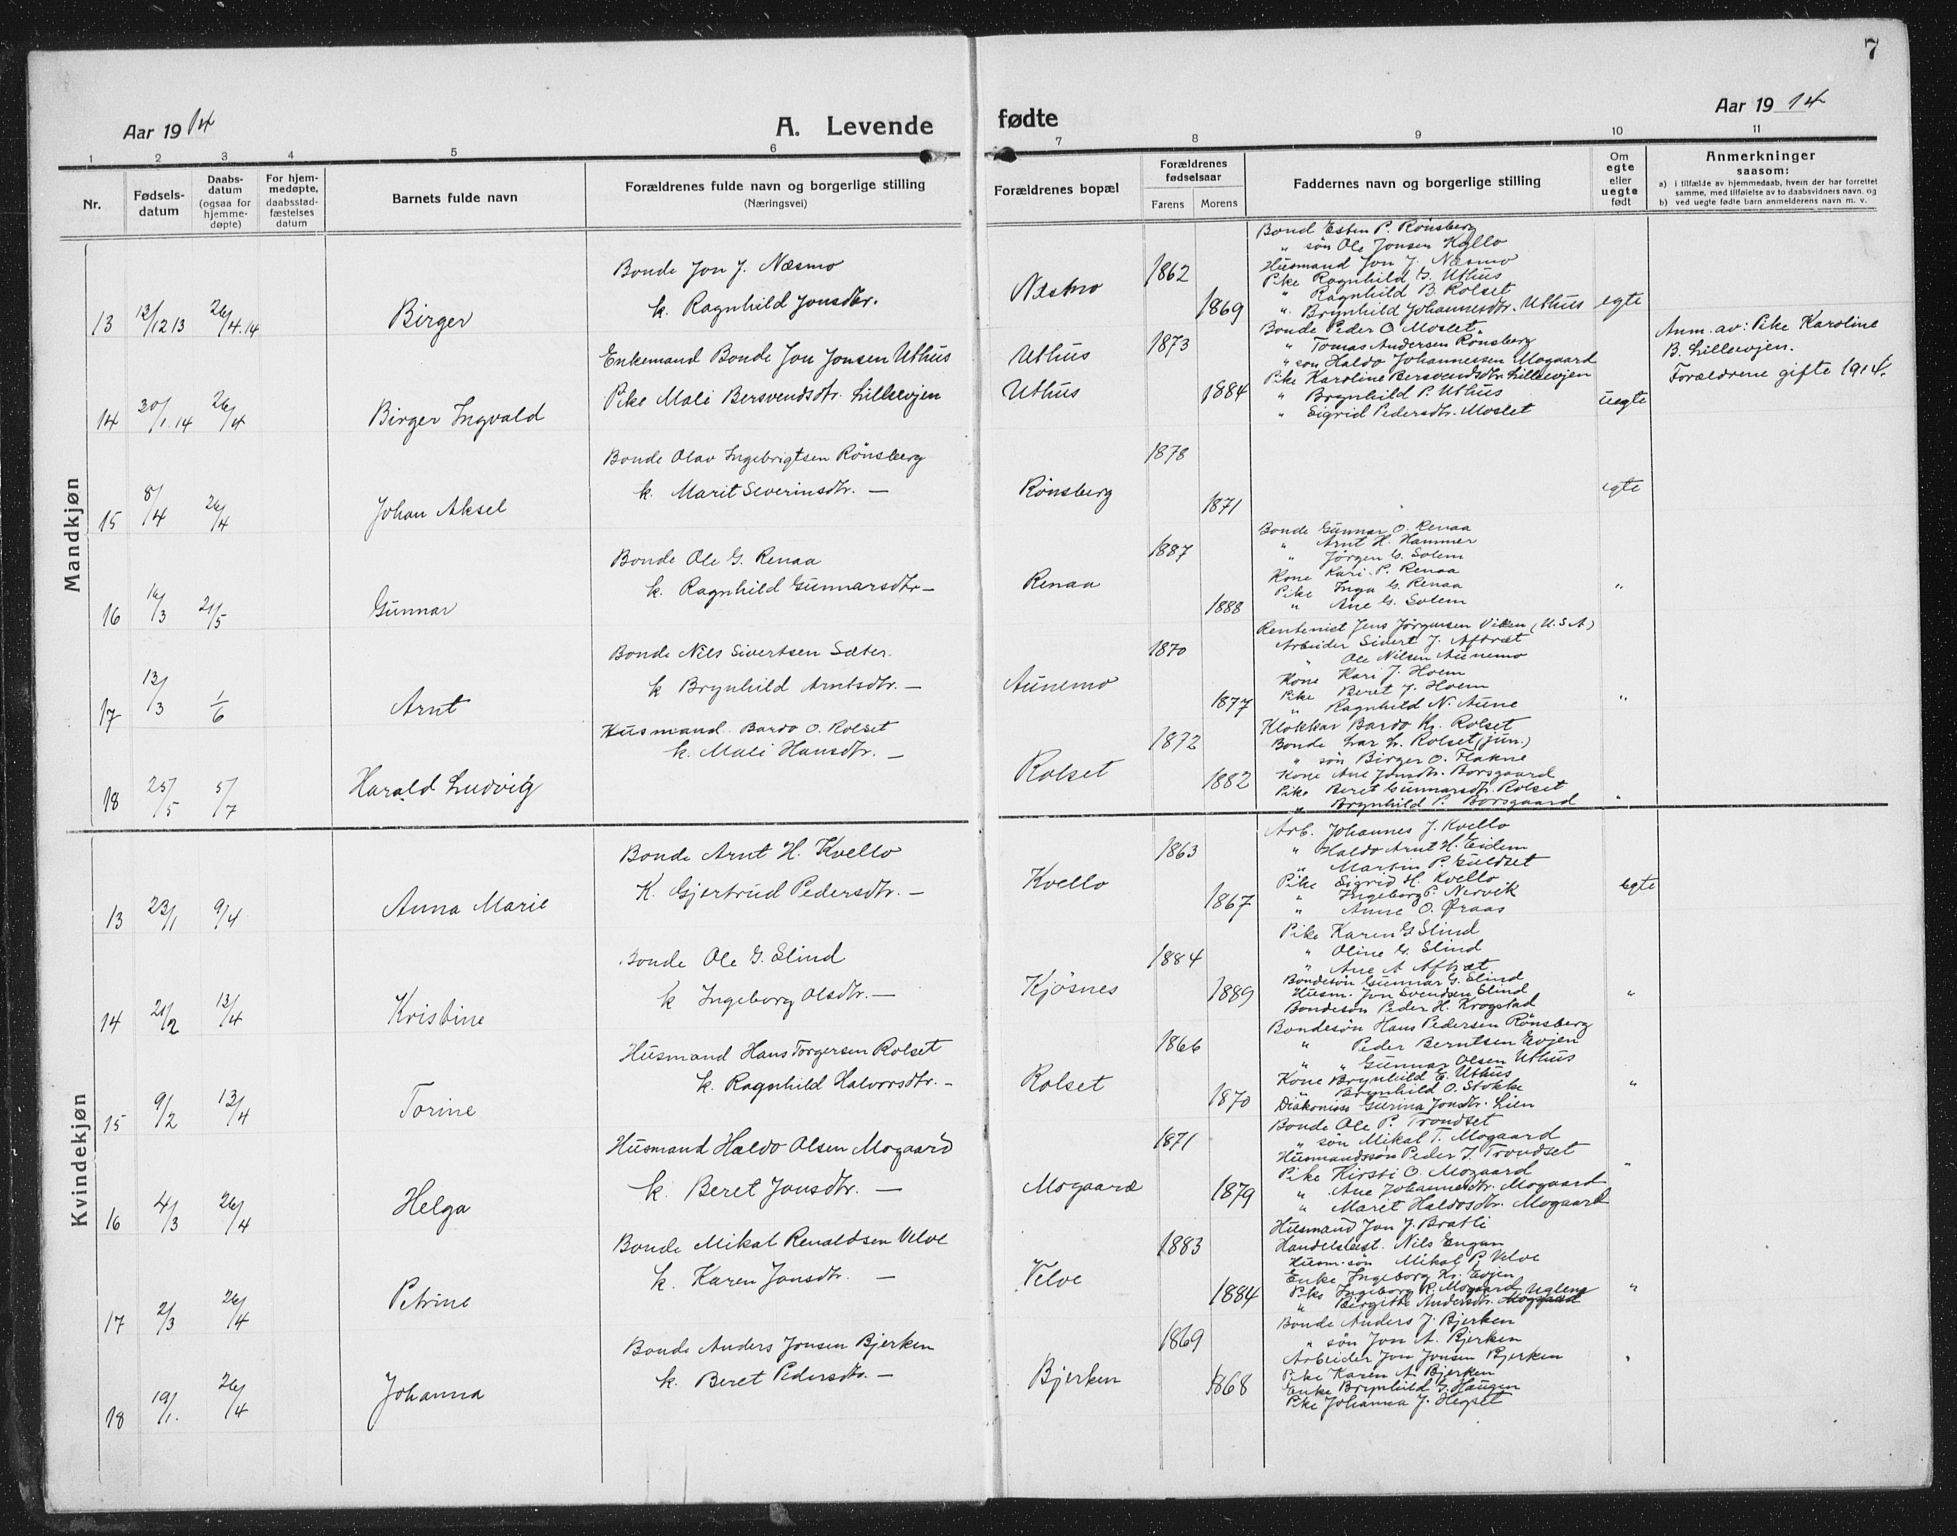 7
Aar 1914
A. Levende fødte
Aar 1914
1 2 3 4 5 6 7 8 9 10 11
Nr.
Fødsels-
datum
Daabs-
datum
(ogsaa for
hjemme-
døpte)
For hjem-
medøpte,
daabsstad-
fæstelses
datum
Barnets fulde navn
Forældrenes fulde navn og borgerlige stilling
(Næringsvei)
Forældrenes bopæl
Forældrenes
fødselsaar
Farens Morens
Faddernes navn og borgerlige stilling
Om
egte
eller
uegte
født
Anmerkninger
saasom:
a) i tilfælde av hjemmedaab, hvem der har forrettet
samme, med tilføielse av to daabsvidners navn, og
b) ved uegte fødte barn anmelderens navn m. v.
Mandkjøn
13 12/12 13 26/4.14 Birger
Bonde Jon J. Næsmo
k. Ragnhild Jonsdtr.
Næsmo 1862 1869
Bond Esten P. Rönsberg
" søn Ole Jonsen Kyllo
Husmand Jon J. Næsmo
Pike Ragnhild G. Uthus
" Ragnhild B. Rolset
" Brynhild Johannesdtr. Uthus
egte
14 30/1.14 26/4 Birger Ingvald
Enkemand Bonde Jon Jonsen Uthus
Pike Mali Bersvendsdtr. Lilleevjen
Uthus 1873
Uthus 1884
Bonde Peder O. Moslet
" Tomas Andersen Rönsberg
" søn Haldo Johannessen Mogaard
Pike Karoline Bersvendsdtr. Lilleevjen
" Brynhild P. Uthus
" Sigrid Pedersdtr. Moslet
uegte
Anm. av: Pike Karoline
B. Lilleevjen.
Forældrene gifte 1914.
15 8/4 26/4 Johan Aksel
Bonde Olav Ingebrigtsen Rönsberg
k. Marit Severinsdtr. —
Rönsberg 1878 1871
egte
16 16/3 21/5 Gunnar
Bonde Ole G. Renaa
k. Ragnhild Gunnarsdtr —
Renaa 1887 1888
Bonde Gunnar O. Renaa
" Arnt H. Hammer
" Jørgen G. Solem
Kone Kari P. Renaa
Pike Inga G. Renaa
" Ane G. Solem
"
17 13/3 1/6 Arnt
Bonde Nils Sivertsen Sæter.
k Brynhild Arntsdtr. —
Aunemo 1870 1877
Rentenist Jens Jörgensen Viken (U.S.A)
Arbeider Sivert J. Aftræt
" Ole Nilsen Aunemo
Kone Kari J. Hoem
Pike Beret J. Hoem
" Ragnhild N. Aune
"
18 25/5 5/7 Harald Ludvig
Husmand Bardo O. Rolset
k. Mali Hansdtr. —
Rolset 1872 1882
Klokkar Bardo Kr. Rolset
Bonde Lar L. Rolset (jun.)
" søn Birger O. Flakne
Kone Ane Jonsdtr. Borsgaard
Pike Beret Gunnarsdtr. Rolset
" Brynhild P. Borsgaard
"
Kvindekjøn
13 23/1 9/4 Anna Marie
Bonde Arnt H. Kvello
K. Gjertrud Pedersdtr. —
Kvello 1863 1867
Arb. Johannes J. Kvello
" Haldo Arnt H. Eidem
" Martin P. Guldset
Pike Sigrid H. Kvello
" Ingeborg P. Nervik
" Anne O. Øraas
egte
14 21/2 13/4 Kristine
Bonde Ole G. Slind
k Ingeborg Olsdtr. —
Kjösnes 1884 1889
Pike Karen G Slind
" Oline G. Slind
" Ane A Aftræt
Bondesön Gunnar G. Slind
Husm. Jon Svendsen Slind
Bondesøn Peder H. Krogstad
"
15 9/2 13/4 Torine
Husmand Hans Torgersen Rolset
k. Ragnhild Halvorsdtr. —
Rolset 1866 1870
Bondesøn Hans Pedersen Rönsberg
" Peder Berntsen Evjen
" " Gunnar Olsen Uthus
Kone Brynhild E. Uthus
" Brynhild O. Stokke
Diakonisse Gurina Jonsdtr. Lien
"
16 4/3 26/4 Helga
Husmand Haldo Olsen Mogaard
k. Beret Jonsdtr. —
Mogaard 1871 1879
Bonde Ole P. Trondset
" søn Mikal T. Mogaard
Husmandssøn Peder J. Trondset
Pike Kirsti O. Mogaard
" Ane Johannesdtr. Mogaard
" Marit Haldosdtr. Mogaard
"
17 2/3 26/4 Petrine
Bonde Mikal Renaldsen Velve
k. Karen Jonsdtr. —
Velve 1883 1884
Husmand Jon J. Bratli
Handelsbest. Nils Engan
Husm. søn Mikal P. Velve
Enke Ingeborg Kr. Evjen
Pike Ingeborg R. Mogaard
" Birgitte Andersdtr. Uglem
"
18 19/1. 26/4 Johanna
Bonde Anders Jonsen Bjerken
k. Beret Pedersdtr. —
Bjerken 1869 1868
Bonde Anders J. Bjerken
" søn Jon A. Bjerken
Arbeider Jon Jonsen Bjerken
Pike Karen A. Bjerken
Enke Brynhild G. Haugen
Pike Johanna J. Hegset
"